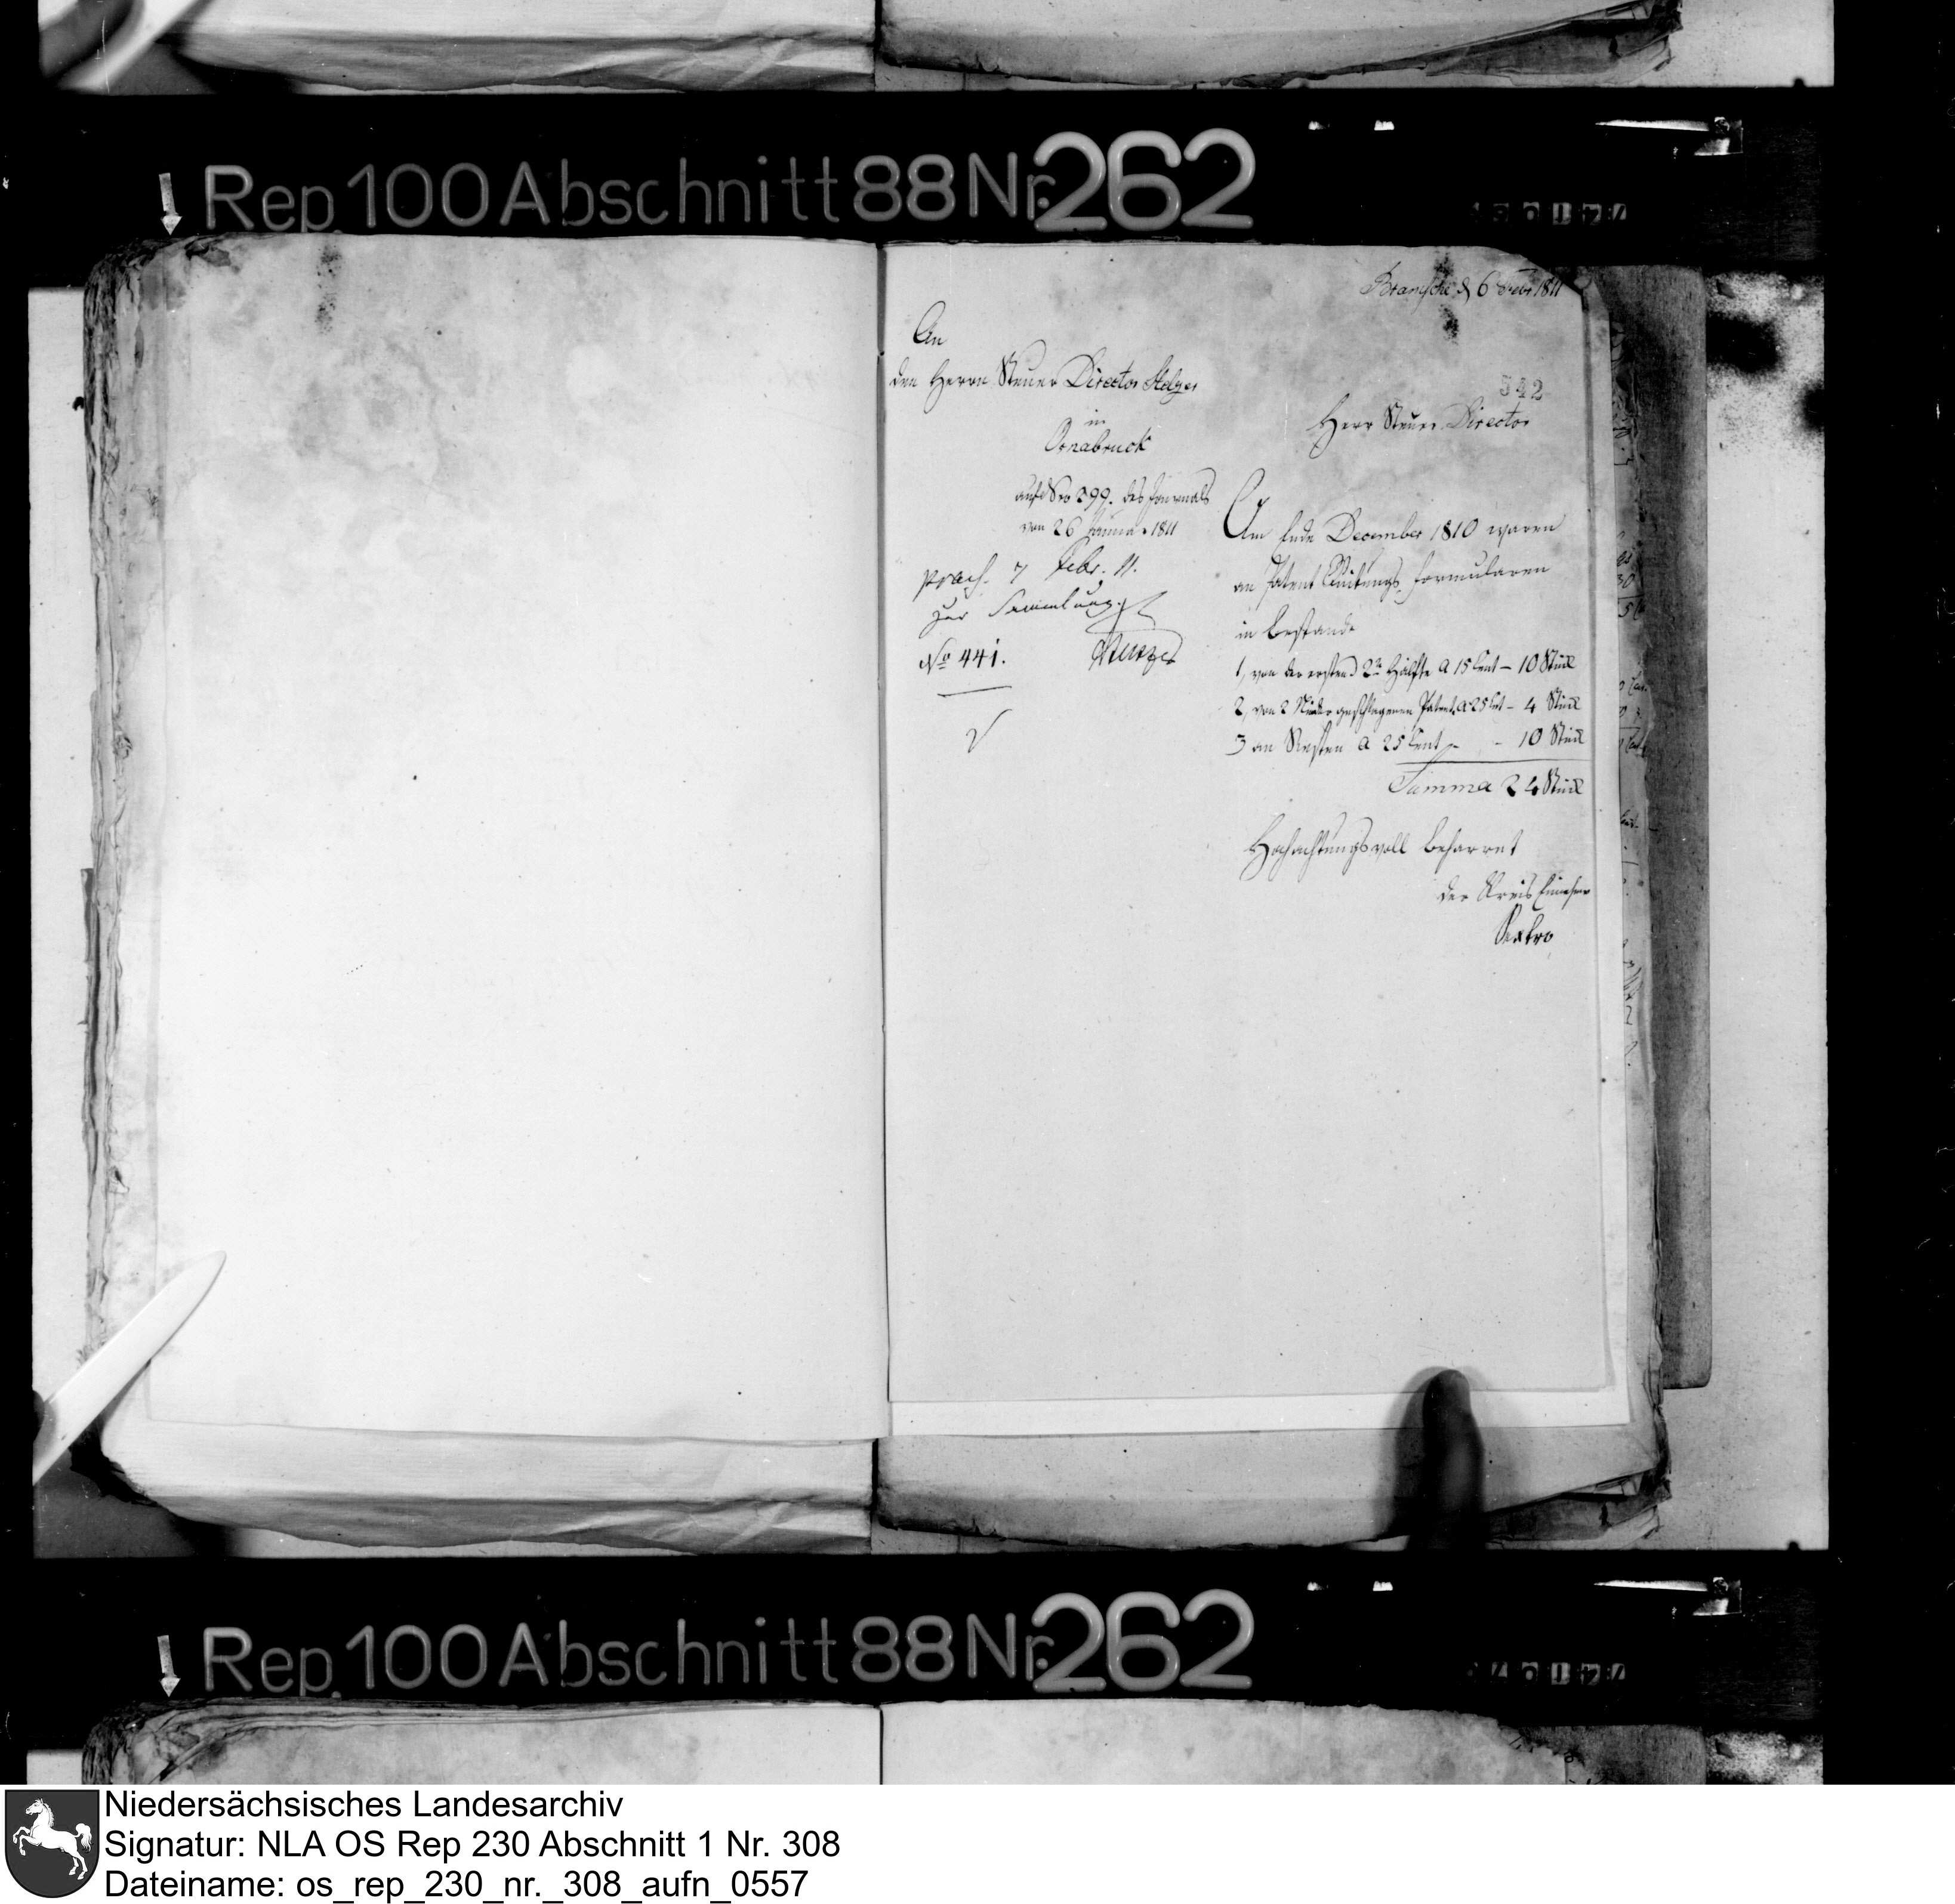 Rep. 100 Abschnitt 88 Nr. 262
Bramsche d 6 Febr 1811
An
den Herrn Steuer Director
in
Osnabruck
auf Nro 299. des Journals
von 26 Januar 1811
praes. 7 Febr. 11.
zur Sammlung.
No 441.
542
Herr Steuer Director
Am Ende December 1810 waren
an Patent Quitungs Formularen
in Bestande
1, von der ersten 2ten Hälfte a 15 Cent – 10 Stück
2, von 2 Niedergeschlagenen Patent. a 25 Cent – 4 Stück
3 an Resten a 25 Cent – – 10 Stück
Summa 24 Stück
Hochachtungsvoll beharret
der Kreis Einnehmer
Sextro
Rep. 100 Abschnitt 88 Nr. 262
Niedersächsisches Landesarchiv
Signatur: NLA OS Rep 230 Abschnitt 1 Nr. 308
Dateiname: os_rep_230_nr._308_aufn_0557